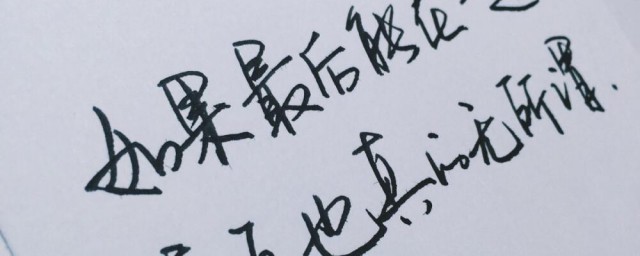 如果最后能在一
也真的无所谓.